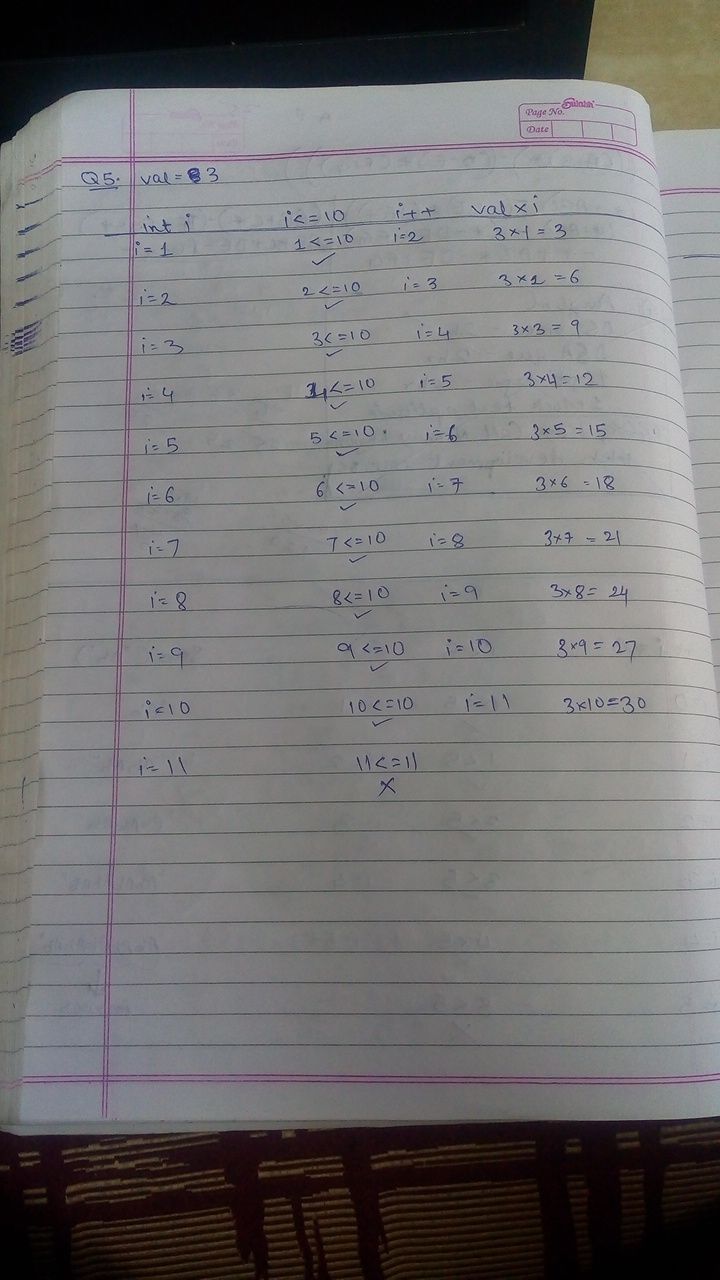 Page No.
Date
Q5. val = 3
int i i<=10 i++ val×i
i=1 1<=10 i=2 3×1=3
i=2 2<=10 i=3 3×2=6
i=3 3<=10 i=4 3×3=9
i=4 4<=10 i=5 3×4=12
i=5 5<=10 i=6 3×5=15
i=6 6<=10 i=7 3×6=18
i=7 7<=10 i=8 3×7=21
i=8 8<=10 i=9 3×8=24
i=9 9<=10 i=10 3×9=27
i<10 10<=10 i=11 3×10=30
i=11 11<=11